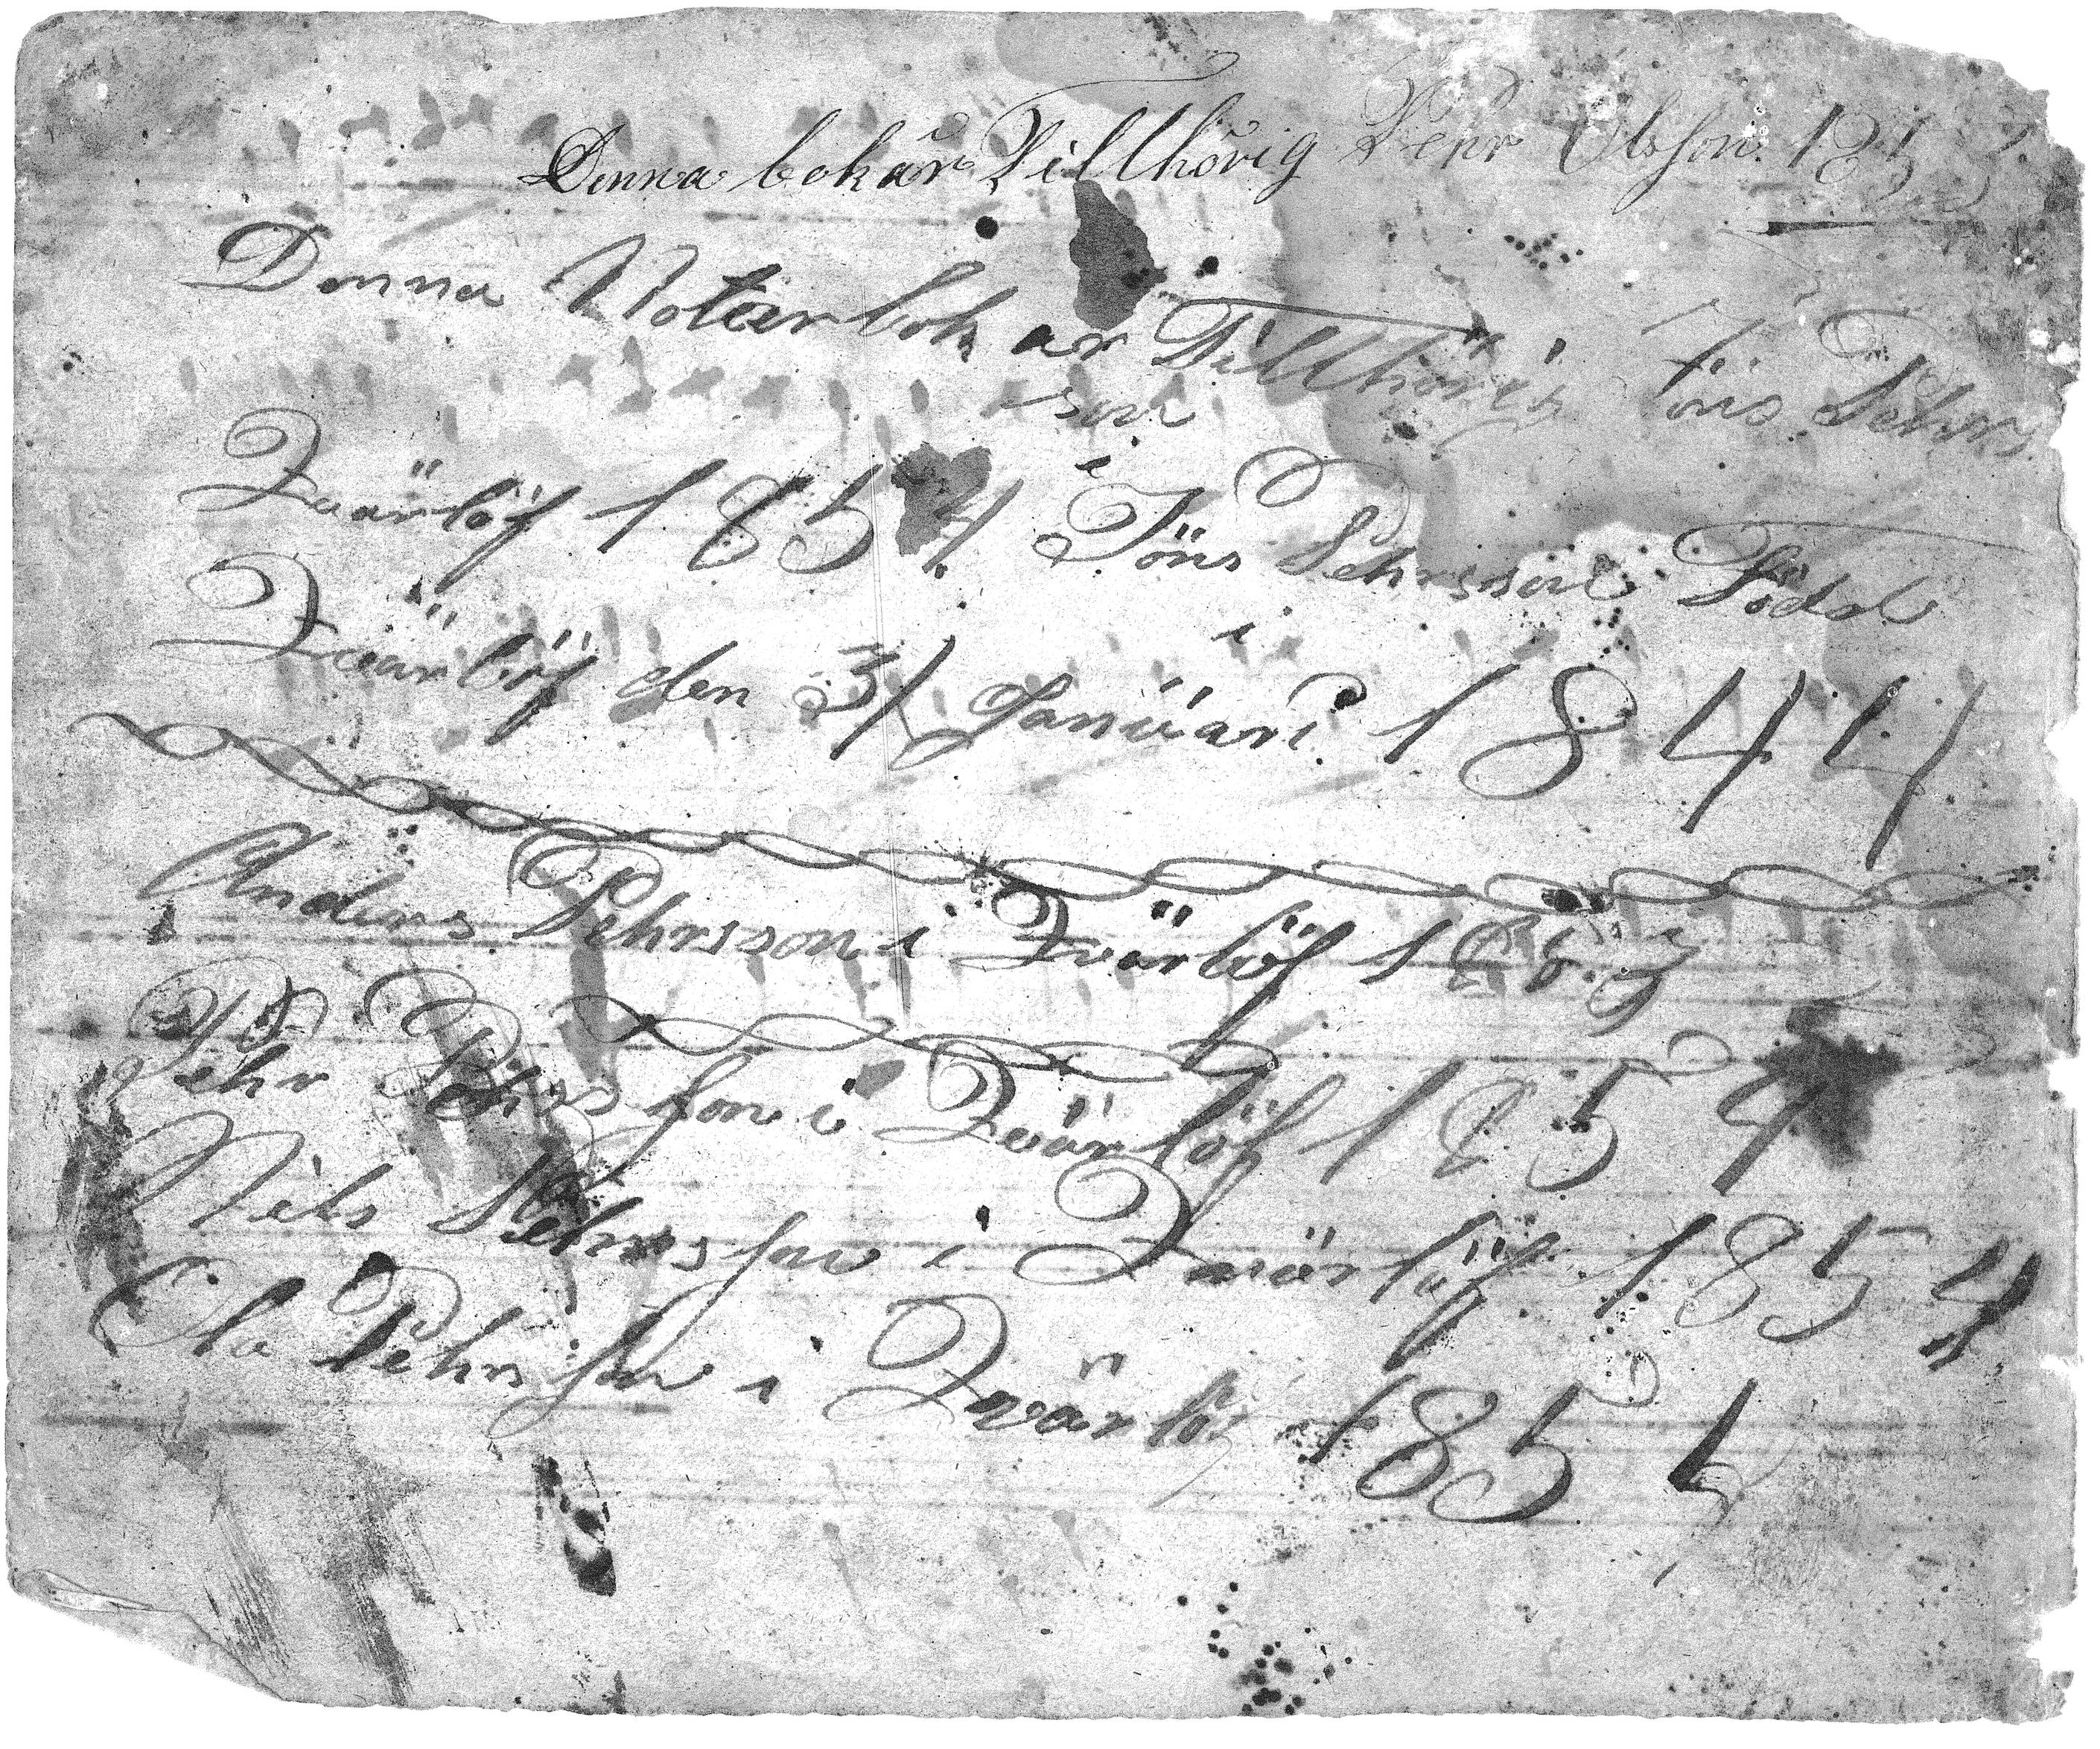 Denna bok är Tillhörig Pehr Olsson 185
Denna Notar bok ar Tillhörig Jöns Pehrs
son i
Zvärlöf 1854 Jöns Pehrsson Född
i
Zvärlöf den 31 Januari 1844
Anders Pehrsson i Zvärlöf
Pehr Pehrsson i Zvärlöf 1854
Nils Pehrsson i Zvärlöf 1854
Ola Pehrson i Zvärlöf 1854